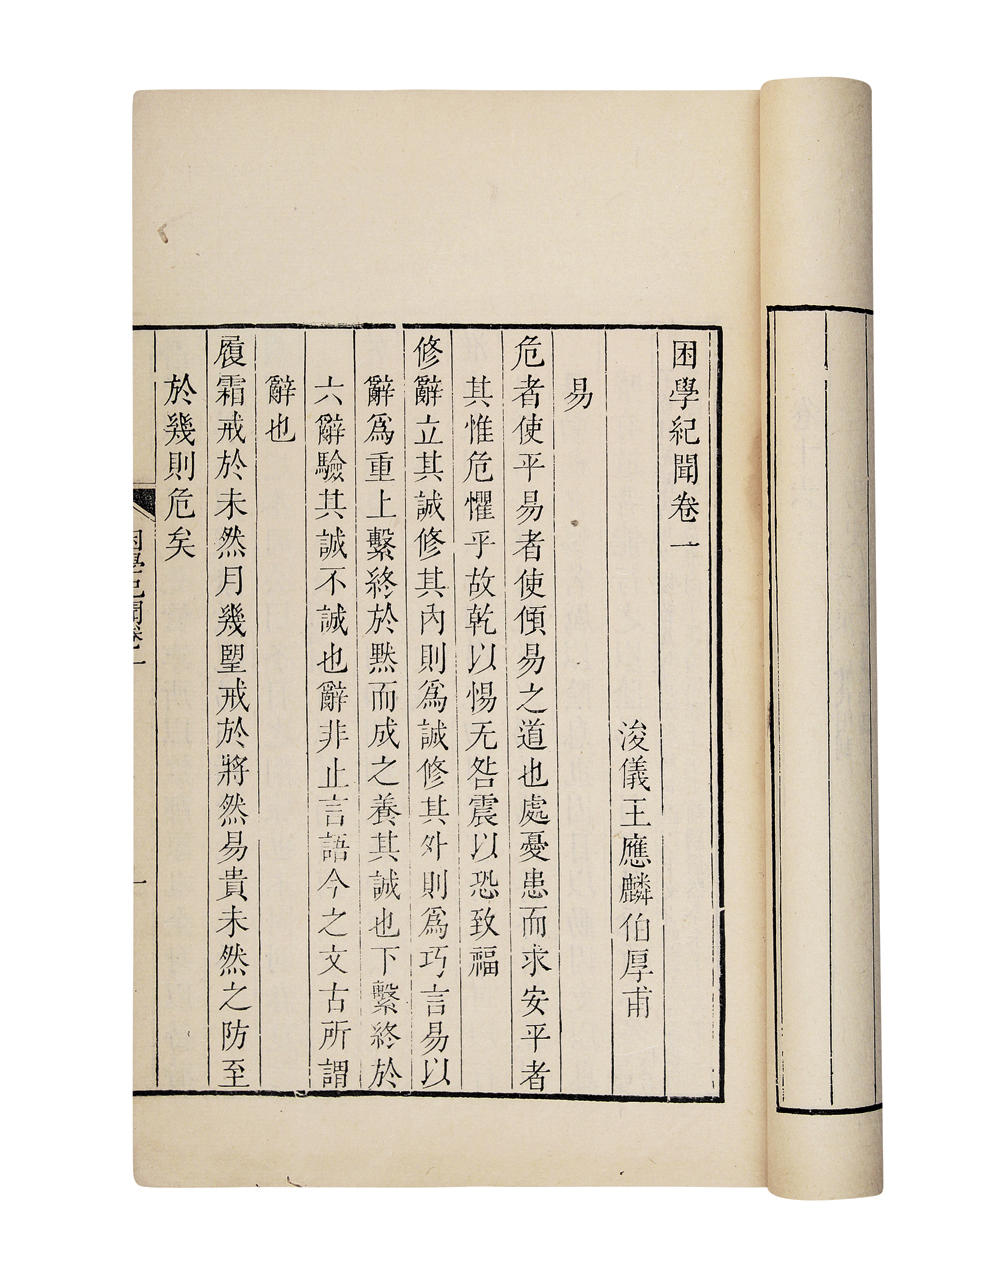 困學紀聞卷一
浚儀王應麟伯厚甫
易
危者使平易者使傾易之道也處憂患而求安平者
其惟危懼乎故乾以惕无咎震以恐致福
修辭立其誠修其內則爲誠修其外則爲巧言易以
辭爲重上繫終於默而成之養其誠也下繫終於
六辭驗其誠不誠也辭非止言語今之文古所謂
辭也
履霜戒於未然月幾朢戒於將然易貴未然之防至
於幾則危矣
困學紀聞卷一
一